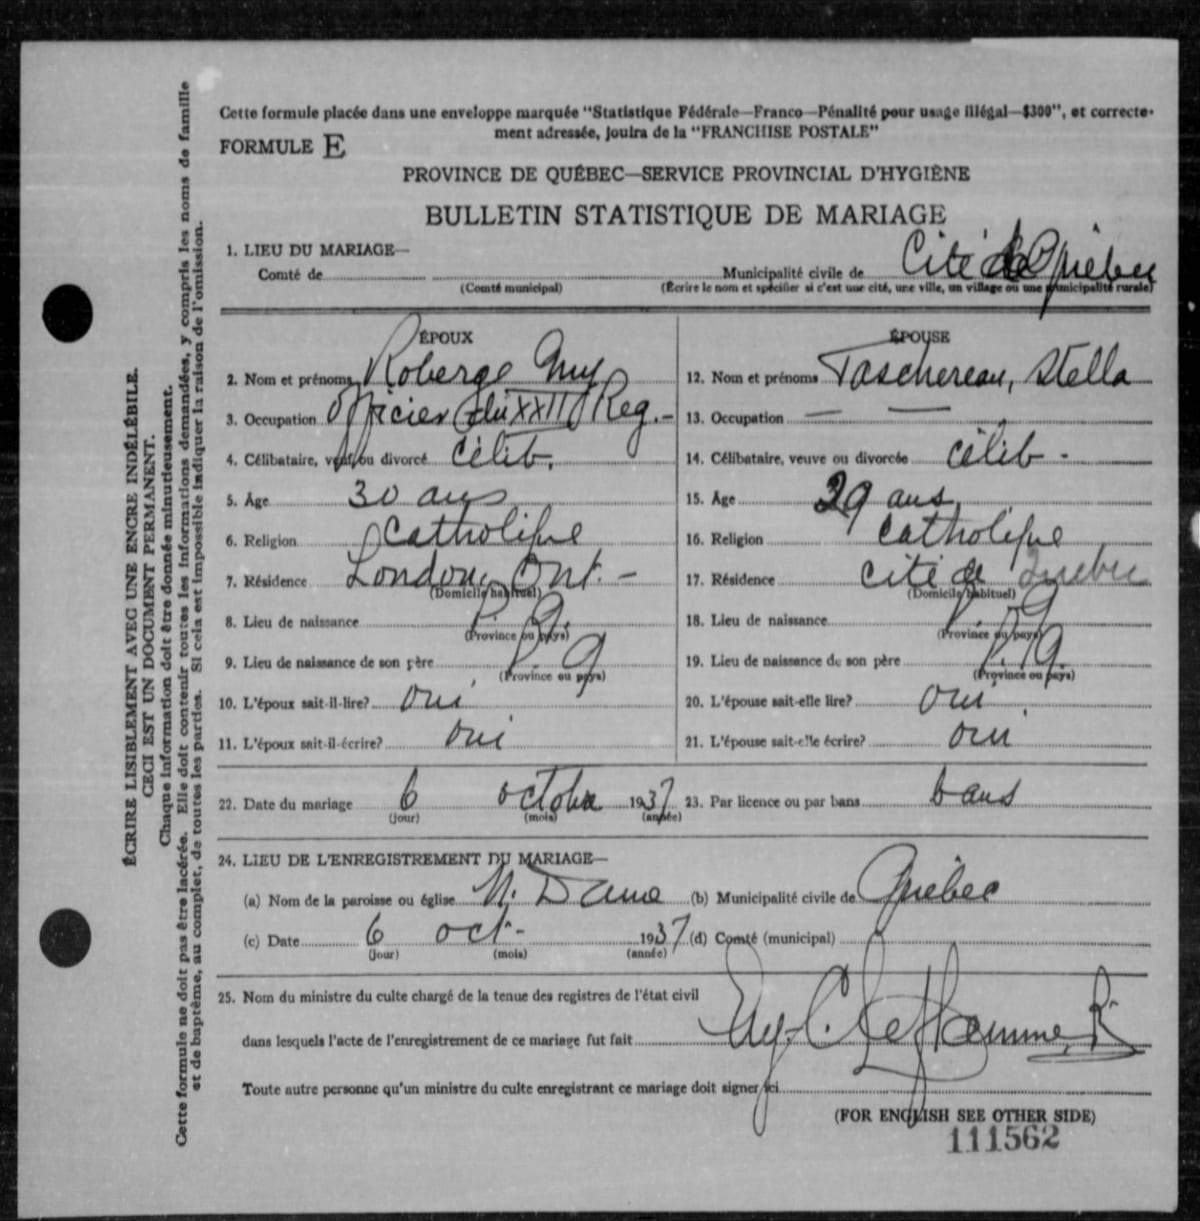 Cette formule placée dans une enveloppe marquée "Statistique Fédérale—Franco—Pénalité pour usage illégal—$300", et correcte-
ment adressée, jouira de la "FRANCHISE POSTALE"
FORMULE E
PROVINCE DE QUÉBEC—SERVICE PROVINCIAL D'HYGIÈNE
BULLETIN STATISTIQUE DE MARIAGE
1. LIEU DU MARIAGE—
Comté de Municipalité civile de Cité de Québec
(Comté municipal) (Écrire le nom et spécifier si c'est une cité, une ville, un village ou une municipalité rurale)
ÉPOUX
2. Nom et prénoms Roberge Guy
3. Occupation Officier du XXII Reg.-
4. Célibataire, veuf, ou divorcé célib.
5. Âge 30 ans
6. Religion Catholique
7. Résidence London, Ont. -
(Domicile habituel)
8. Lieu de naissance P. Q.
(Province ou pays)
9. Lieu de naissance de son père P. Q
(Province ou pays)
10. L'époux sait-il-lire? oui
11. L'époux sait-il-écrire? oui
ÉPOUSE
12. Nom et prénoms Taschereau, Stella
13. Occupation — —
14. Célibataire, veuve ou divorcée célib -
15. Âge 29 ans
16. Religion catholique
17. Résidence cité de Québec
(Domicile habituel)
18. Lieu de naissance P. Q
(Province ou pays)
19. Lieu de naissance de son père P. Q.
(Province ou pays)
20. L'épouse sait-elle lire? oui
21. L'épouse sait-elle écrire? oui
22. Date du mariage 6 octobre 1937 23. Par licence ou par bans bans
(jour) (mois) (année)
24. LIEU DE L'ENREGISTREMENT DU MARIAGE—
(a) Nom de la paroisse ou église N. Dame (b) Municipalité civile de Québec
(c) Date 6 oct.- 1937 (d) Comté (municipal)
(jour) (mois) (année)
25. Nom du ministre du culte chargé de la tenue des registres de l'état civil
dans lesquels l'acte de l'enregistrement de ce mariage fut fait Eug. C. Laflamme,
Toute autre personne qu'un ministre du culte enregistrant ce mariage doit signer ici
(FOR ENGLISH SEE OTHER SIDE)
111562
ÉCRIRE LISIBLEMENT AVEC UNE ENCRE INDÉLÉBILE.
CECI EST UN DOCUMENT PERMANENT.
Chaque information doit être donnée minutieusement.
Cette formule ne doit pas être lacérée. Elle doit contenir toutes les informations demandées, y compris les noms de famille
et de baptême, au complet, de toutes les parties. Si cela est impossible indiquer la raison de l'omission.